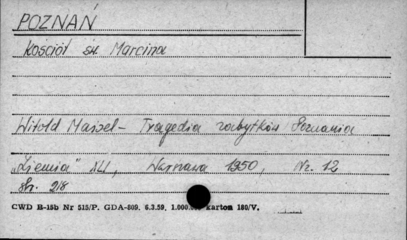 POZNAŃ
Kościół św. Marcina
Witold Maisel – Tragedia zabytków Poznania
„Ziemia” XLI, Warszawa 1950, Nr. 12
str. 218
CWD R-15b Nr 515/P. GDA-809. 6.3.59. 1.000.000 karton 180/V.